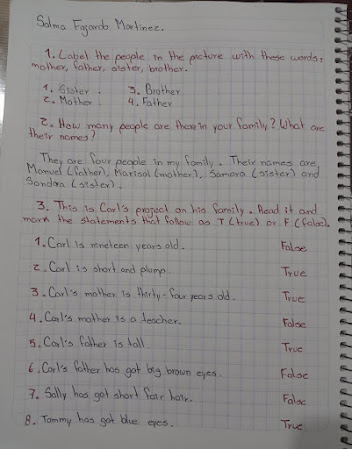 Salma Fajardo Martinez.
1. Label the people in the picture with these words:
mother, father, sister, brother.
1. Sister. 3. Brother
2. Mother 4. Father
2. How many people are there in your family? What are
their names?
They are four people in my family. Their names are,
Manuel (father), Marisol (mother), Samara (sister) and
Sandra (sister).
3. This is Carl's project on his family. Read it and
mark the statements that follow as T (true) or F (false).
1. Carl is nineteen years old. False
2. Carl is short and plump. True
3. Carl's mother is thirty-four years old. True
4. Carl's mother is a teacher. False
5. Carl's father is tall. True
6. Carl's father has got big brown eyes. False
7. Sally has got short fair hair. False
8. Tommy has got blue eyes. True